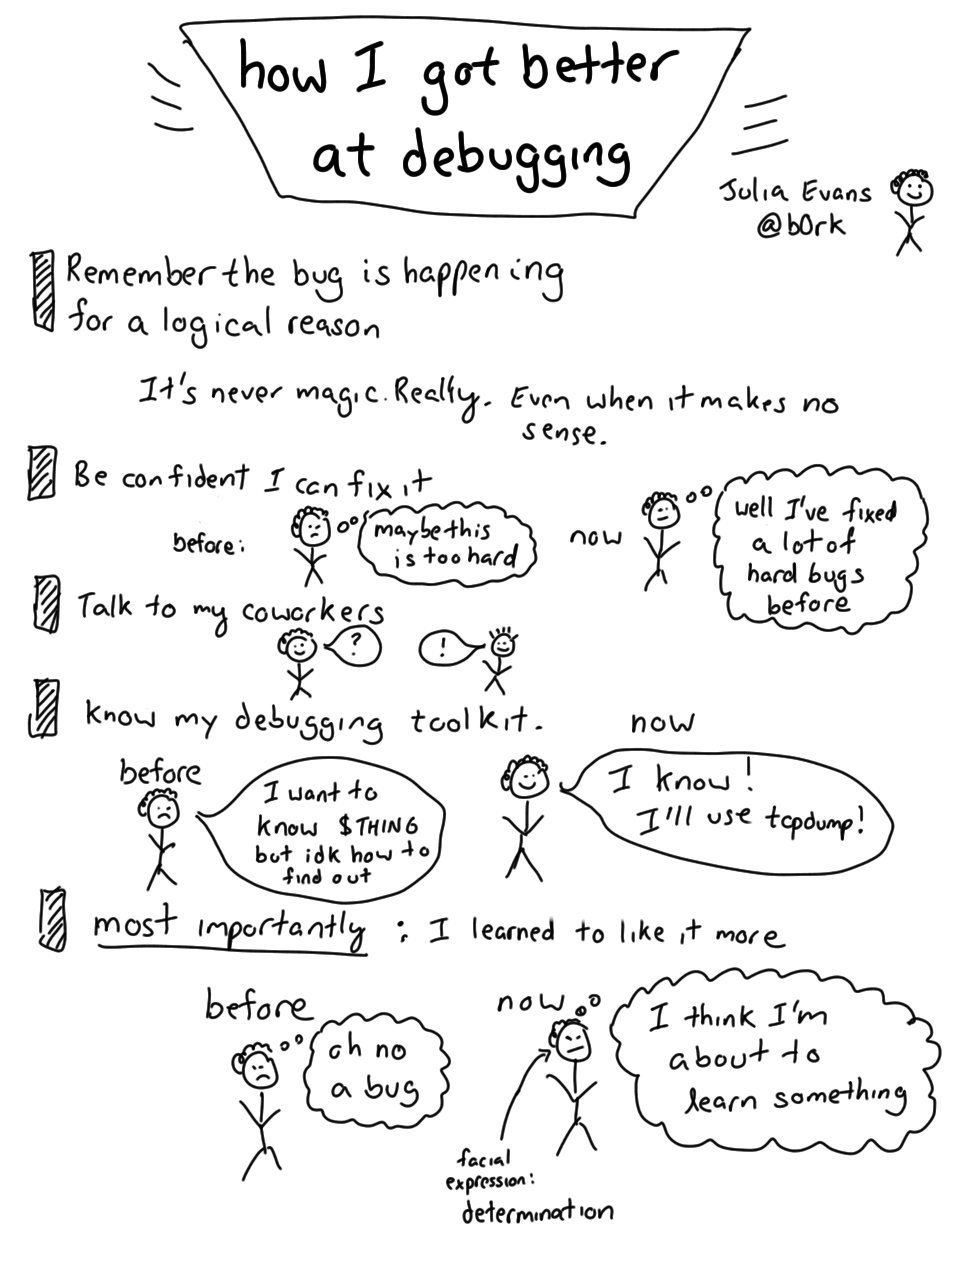 how I got better
at debugging
Julia Evans
@b0rk
Remember the bug is happening
for a logical reason
It's never magic. Really. Even when it makes no
sense.
Be confident I can fix it
before:
maybe this
is too hard
now
well I've fixed
a lot of
hard bugs
before
Talk to my coworkers
?
!
know my debugging toolkit.
before
I want to
know $THING
but idk how to
find out
now
I know!
I'll use tcpdump!
most importantly: I learned to like it more
before
oh no
a bug
now
I think I'm
about to
learn something
facial
expression:
determination